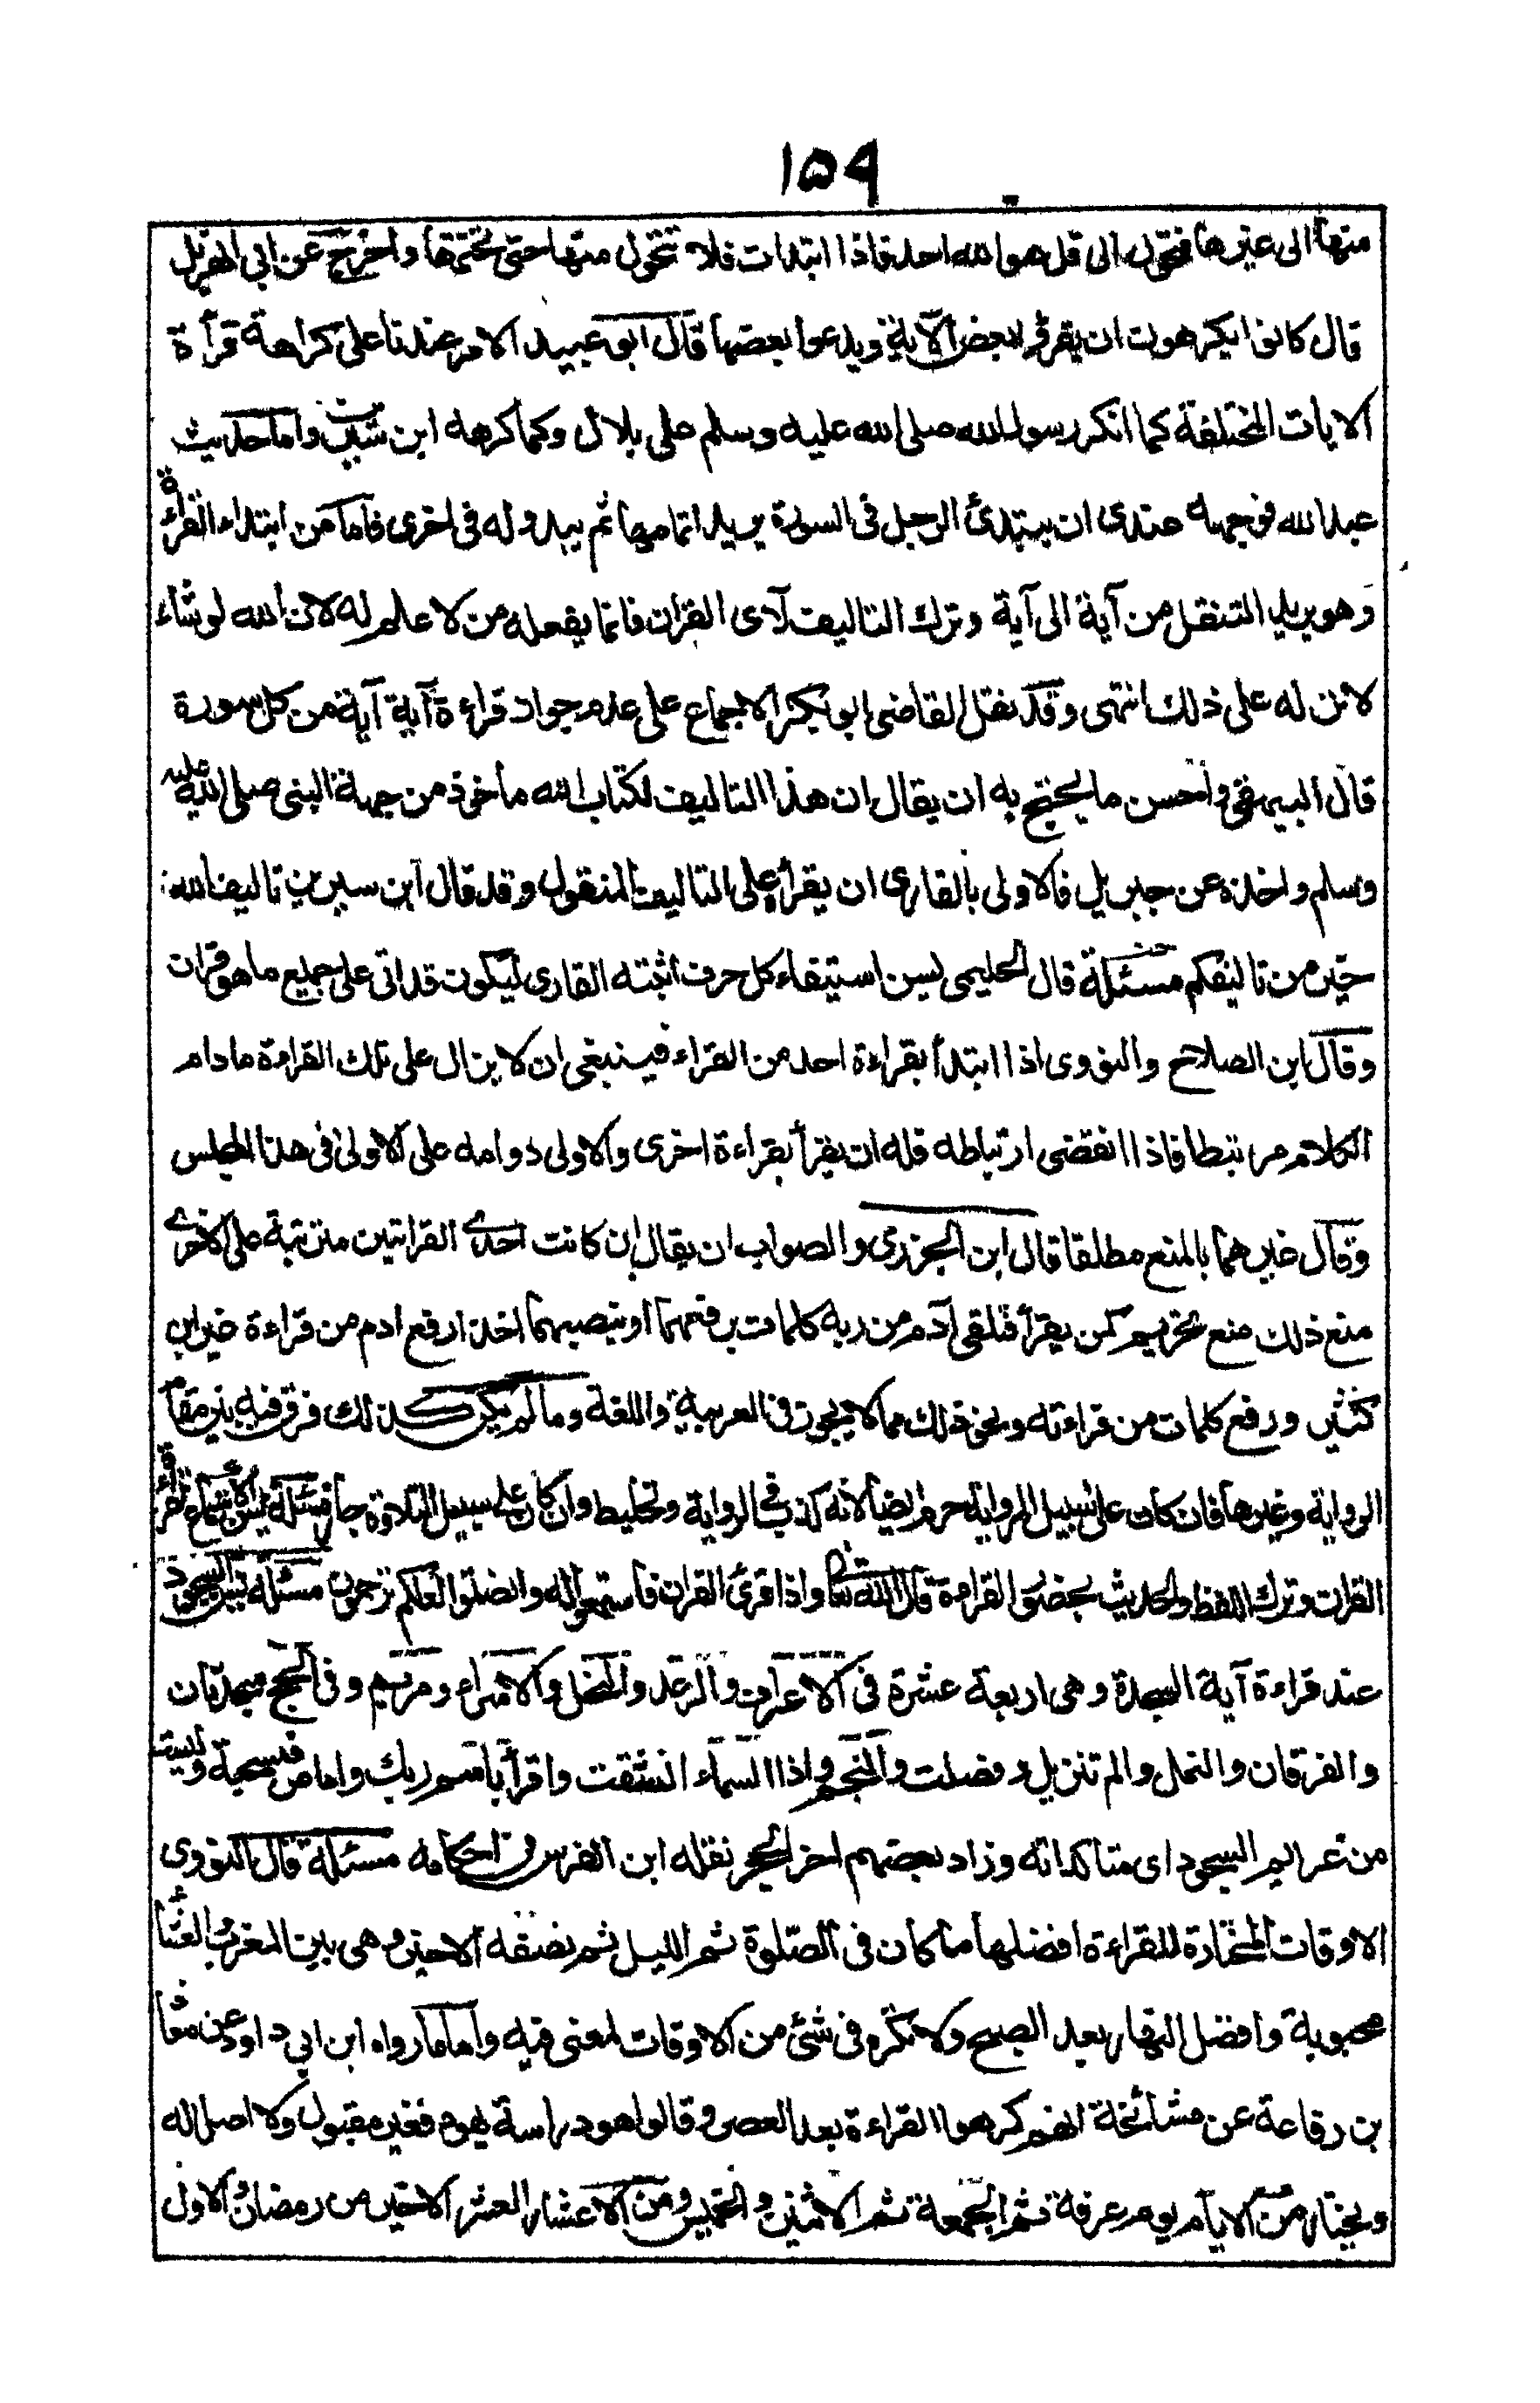 ١٥٩
منها الى غيرها فتحول الى قل هو الله احد فاذا ابتدات فلا تتحول منها حتى تختمها واخرج عن ابى الهذيل
قال كانوا يكرهون ان يقرؤا بعض الآية ويدعوا بعضها قال ابو عبيد الامر عندنا على كراهة قرأة
الايات المختلفة كما انكر رسول الله صلى الله عليه وسلم على بلال وكما كرهه ابن سيرين واما حديث
عبد الله فوجهه عندى ان يبتدئ الرجل فى السورة يريد اتمامها ثم يبدو له فى اخرى فاما من ابتداء القرأة
وهو يريد التنقل من آية الى آية وترك التاليف لآى القران فانما يفعله من لا علم له لان الله لو شاء
لانزله على ذلك انتهى وقد نقل القاضى ابو بكر الاجماع على عدم جواز قراءة آية آية من كل سورة
قال البيهقى واحسن ما يحتج به ان يقال ان هذا التاليف لكتاب الله مأخوذ من جهة النبى صلى الله عليه
وسلم واخذه عن جبريل فالاولى بالقارى ان يقرأ على التاليف المنقول وقد قال ابن سيرين تاليف الله
خير من تاليفكم مسئلة قال الحليمى يسن استيفاء كل حرف اثبته القارى ليكون قد اتى على جميع ما هو قران
وقال ابن الصلاح والنووى اذا ابتدأ بقراءة احد من القراء فينبغى ان لا يزال على تلك القراءة ما دام
الكلام مرتبطا فاذا انقضى ارتباطه فله ان يقرأ بقراءة اخرى والاولى دوامه على الاولى فى هذا المجلس
وقال غيرهما بالمنع مطلقا قال ابن الجزرى والصواب ان يقال ان كانت احدى القراتين مترتبة على الاخرى
منع ذلك منع تحريم كمن يقرأ فتلقى آدم من ربه كلمات برفعهما او نصبهما اخذ ارفع ادم من قراءة غير ابن
كثير ورفع كلمات من قراءته ونحو ذلك مما لا يجوز فى العربية واللغة وما لم يكن كذلك فرق فيه بين مقام
الرواية وغيرها فان كان على سبيل الرواية حرم ايضا لانه كذب فى الرواية وتخليط وان كان على سبيل التلاوة جاز مسئلة يسن الاستماع لقرأة
القران وترك اللغط والحديث بحضور القراءة قال الله تعا واذا قرئ القران فاستمعوا له وانصتوا لعلكم ترحمون مسئلة يسن السجود
عند قراءة آية السجدة وهى اربعة عشرة فى الاعراف والرعد والنحل والاسراء ومريم وفى الحج سجدتان
والفرقان والنمل والم تنزيل وفصلت والنجم واذا السماء انشقت واقرأ باسم ربك واما ص فمستحبة وليست
من عزائم السجود اى متاكداته وزاد بعضهم اخر الحجر نقله ابن الفرس فى احكامه مسئلة قال النووى
الاوقات المختارة للقراءة افضلها ما كان فى الصلوة ثم الليل ثم نصفه الاخير وهى بين المغرب والعشا
محبوبة وافضل النهار بعد الصبح ولا تكره فى شئ من الاوقات لمعنى فيه واما ما رواه ابن ابى داود عن معا
بن رفاعة عن مشائخة انهم كرهوا القراءة بعد العصر وقالوا هو دراسة يهود فغير مقبول ولا اصل له
ويختار من الايام يوم عرفة ثم الجمعة ثم الاثنين والخميس ومن الاعشار العشر الاخير من رمضان والاول